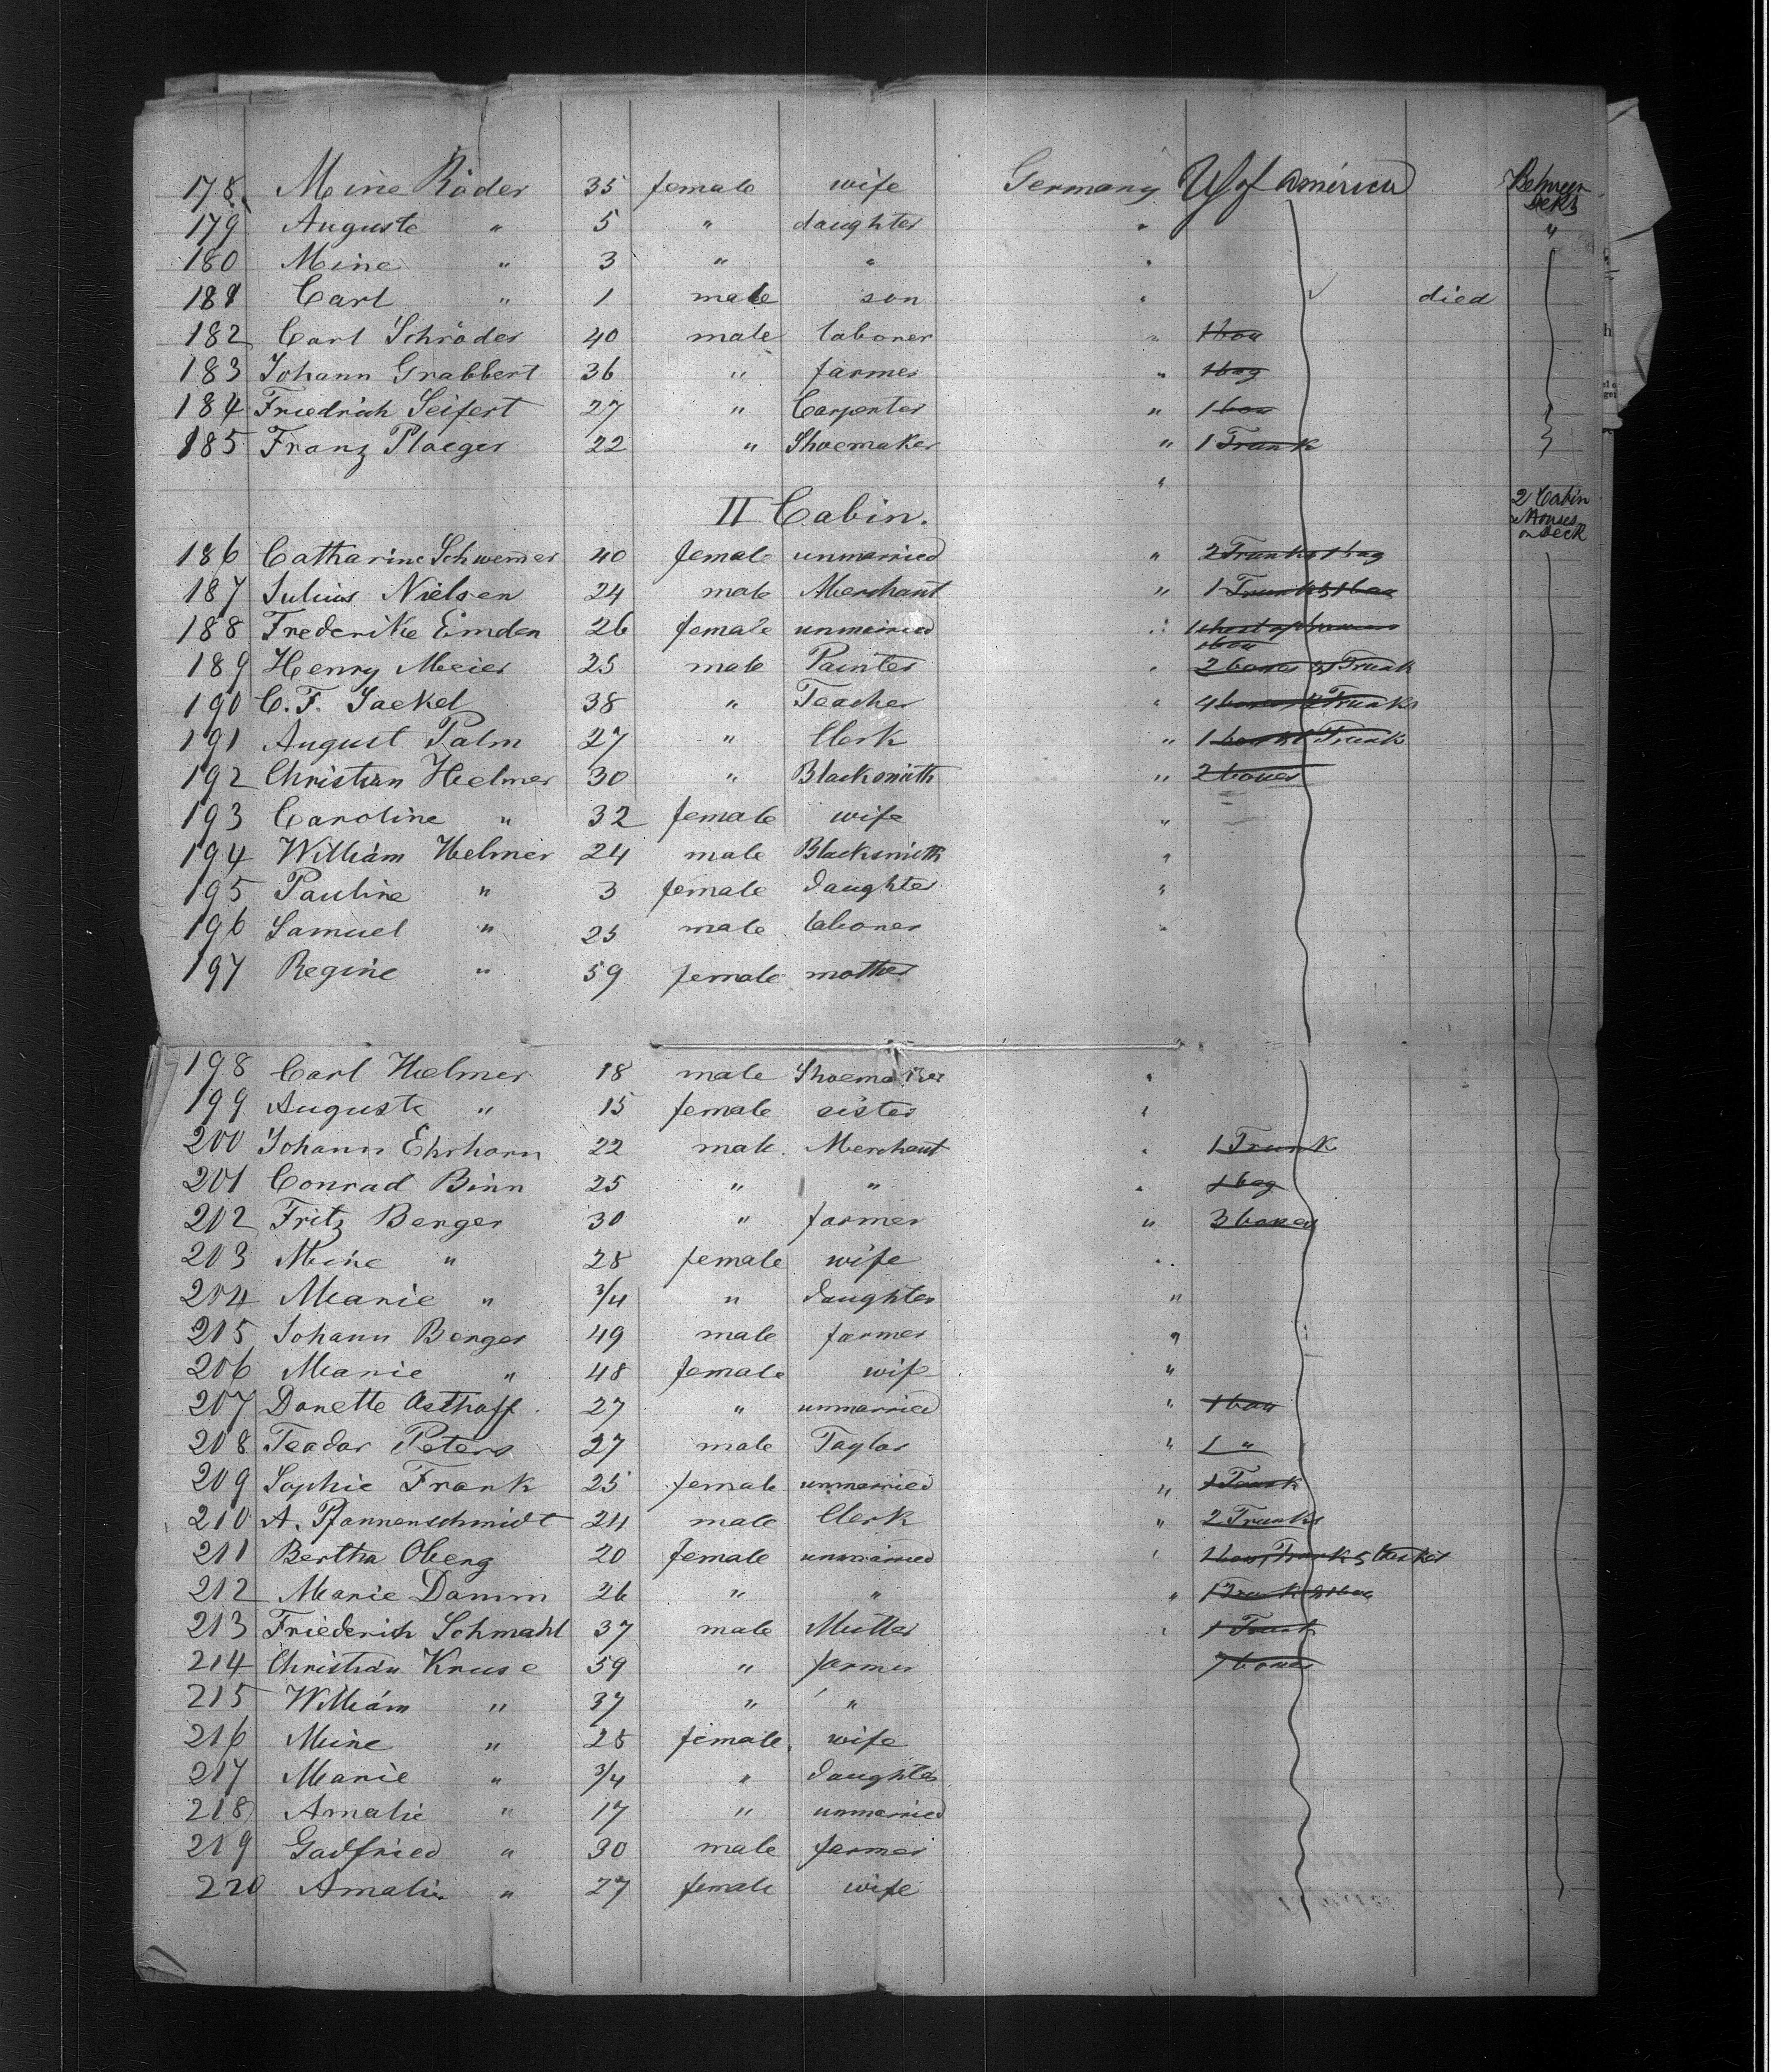 178. Mine Röder 35 female wife Germany US of America Between Deks
179 Auguste " 5 " daughter " "
180 Mine " 3 " " "
181 Carl " 1 male son " died
182 Carl Schröder 40 male laborer " 1 box
183 Johann Grabbert 36 " farmer " 1 bag
184 Friedrich Seifert 27 " Carpenter " 1 box
185 Franz Plaeger 22 " Shoemaker " 1 Trunk
"
II Cabin. 2 Cabin Houses on Deck
186 Catharine Schwemer 40 female unmarried " 2 Trunks 1 bag
187 Julius Nielsen 24 male Merchant " 1 Trunk & 1 box
188 Frederike Emden 26 female unmarried " 1 chest of
1 box
189 Henry Meier 25 male Painter " 2 boxes & 1 Trunk
190 C. F. Jaekel 38 " Teacher " 4 boxes Trunks
191 August Palm 27 " Clerk " 1 box & 1 Trunk
192 Christian Helmer 30 " Blacksmith " 2 boxes
193 Caroline " 32 female wife "
194 William Helmer 24 male Blacksmith "
195 Pauline " 3 female daughter "
196 Samuel " 25 male laborer "
197 Regine " 59 female mother
198 Carl Helmer 18 male Shoemaker "
199 Auguste " 15 female sister "
200 Johann Ehrhorn 22 male Merchant " 1 Trunk
201 Conrad Binn 25 " " " 1 bag
202 Fritz Berger 30 " farmer " 3 boxes
203 Mine " 28 female wife "
204 Marie " 3/4 " daughter "
205 Johann Berger 49 male farmer "
206 Marie " 48 female wife "
207 Donette Asthoff 27 " unmarried " 1 box
208 Teador Peters 27 male Taylor " 1 "
209 Sophie Frank 25 female unmarried " 1 Trunk
210 A. Pfannenschmidt 24 male Clerk " 2 Trunks
211 Bertha Oberg 20 female unmarried " 1 box, Trunk & basket
212 Marie Damm 26 " " " 1 Trunk & 1 box
213 Friederich Schmahl 37 male Muller " 1 Trunk
214 Christian Kruse 59 " farmer 7 boxes
215 William " 37 " "
216 Mine " 28 female wife
217 Marie " 3/4 " daughter
218 Amalie " 17 " unmarried
219 Gadfried " 30 male farmer
220 Amalie " 27 female wife